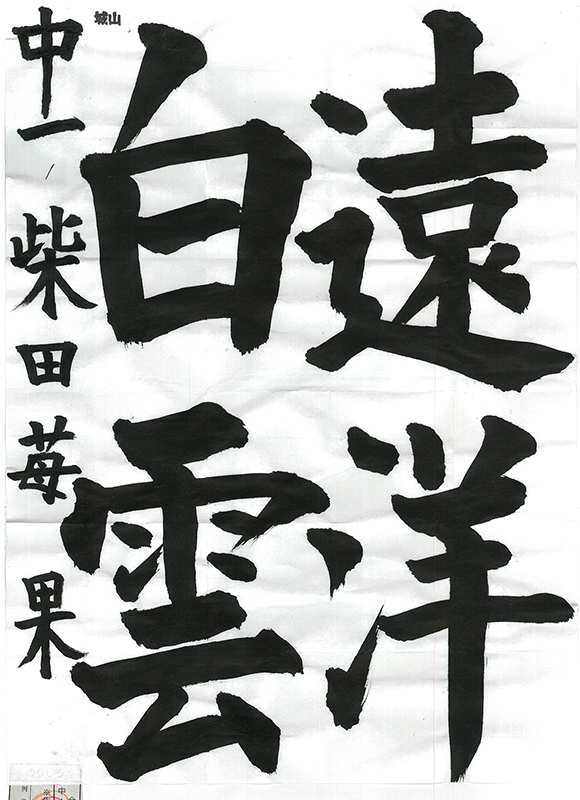 遠洋
白雲
中一 柴田苺果
城山